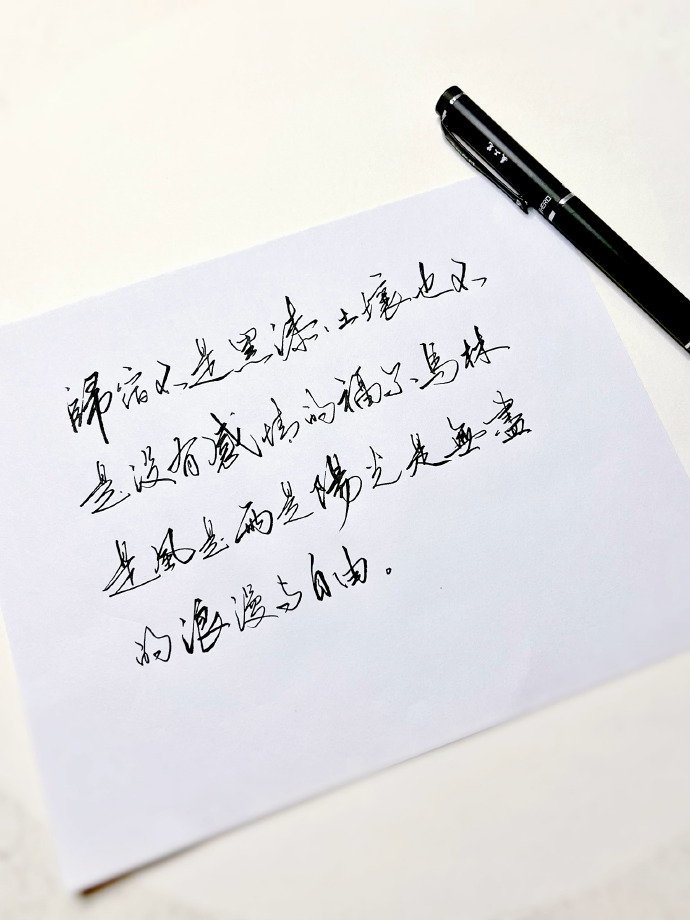 歸宿不是黑漆土壤也不
是没有感情的福尔馬林
是風是雨是陽光是無盡
的浪漫与自由。
HERO